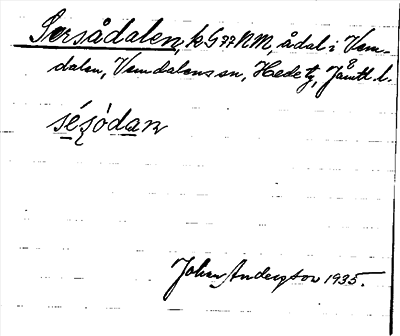 Sersådalen, k G 77 NM, ådal i Vem-
dalen, Vemdalens sn, Hede tg, Jämtl. l.
séşódan
Johan Anderson 1935.